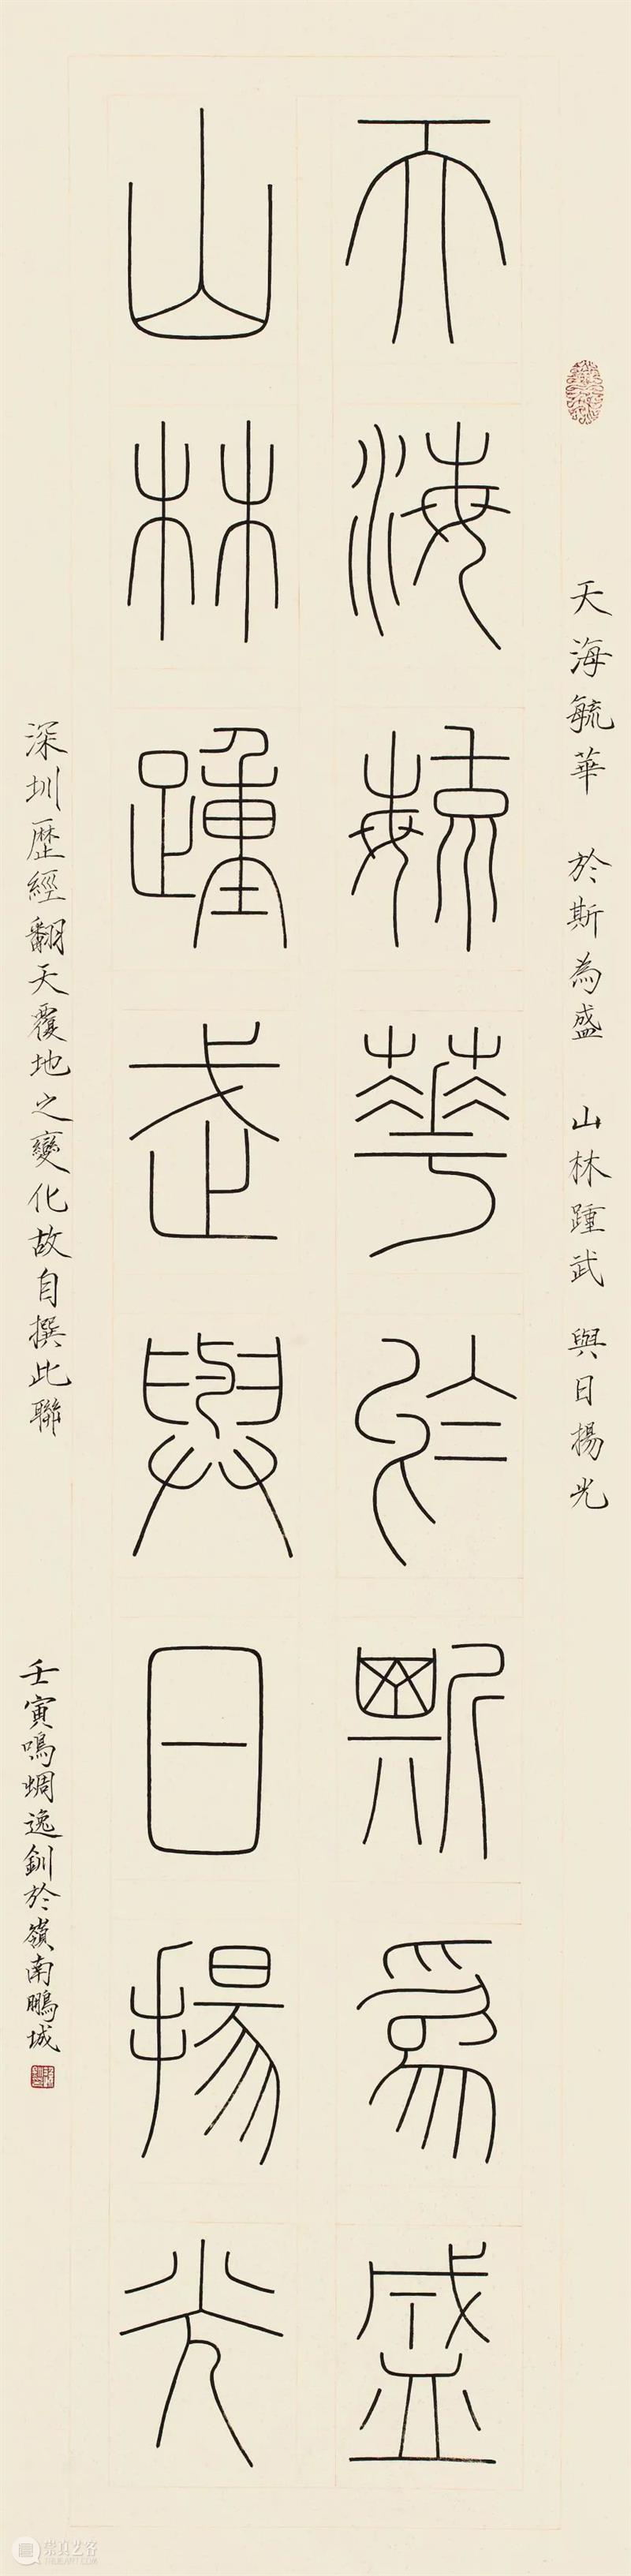 天海毓華　於斯為盛　山林踵武　與日揚光
天海毓華於斯為盛
山林踵武與日揚光
深圳歷經翻天覆地之變化故自撰此聯
壬寅鳴蜩逸釧於嶺南鵬城
崇真艺客
TRUEART.COM